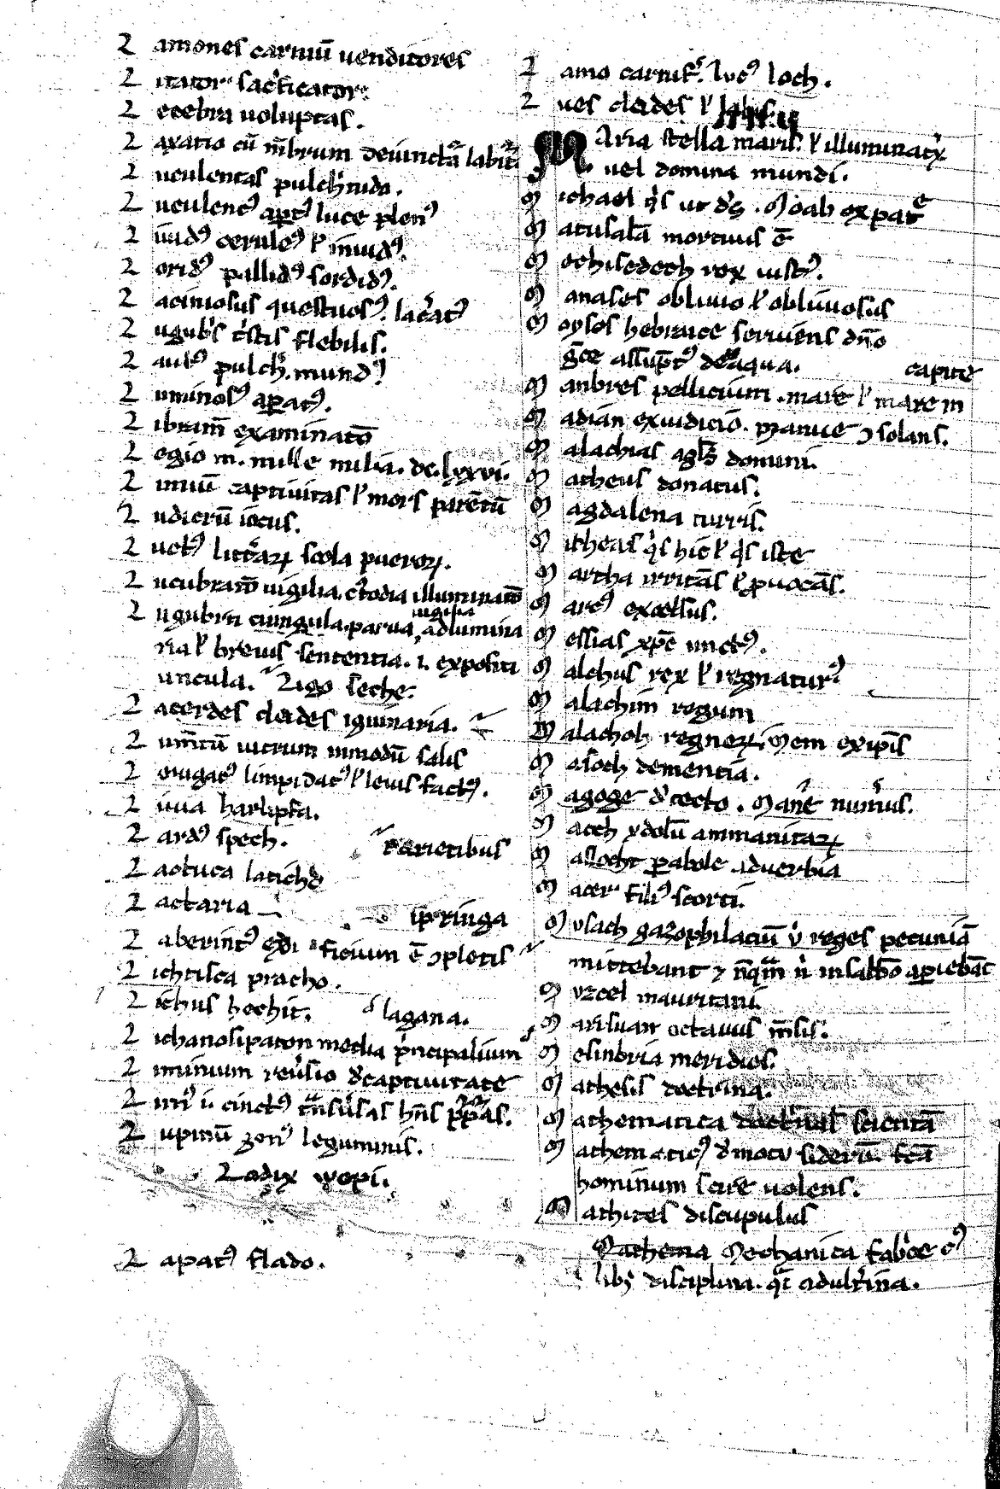 L amones carniū uenditores
L itator sac̉ficator
L ecebra uoluptas.
L axatio cū mb̄rum deiunctā labit̉
L uculentas pulch̉nido.
L uculent⁹ aꝑt⁹ luce plen⁹
L iuid⁹ cerule⁹ ł inuid⁹.
L orid⁹ pallid⁹ sordid⁹.
L aciniosus questuos⁹. lac̉at⁹
L ugub̉s t̉stis flebilis.
L aut⁹ pulch̉. mund⁹
L uminos⁹ aꝑat⁹.
L ibram̄ examinatō
L egio m. mille milia. dc. lxxvi.
L iniū captiuitas ł mors parētū
L udicrū iocus.
L uct⁹ litt̉aꝝ scola pueroꝝ.
L ucubratō uigilia. c̉todia illuminatō
L ugubri cuingula. parua, uigilia adlumina
ria ł breuis sententia. i. expositi
uncula. Ligo seche.
L acerdes clides iguinaria.
L um̄tū uitrum inmodū salis
L euigat⁹ limpidat⁹ ł leuis fact⁹.
L iuia harlipfa.
L ard⁹ spech.
parietibus
L actuca latichd
L actaria
ipringa
L aberint⁹ edi ficium ē ↄpletis
L ichtisca pracho.
L ichus hechit. lagana.
L ichanosipaton media p̉ncipalium
L iminium reủsio d̉captiuitate
L upinū gen⁹ leguminis.
Lodix wepi.
L apat⁹ flado.
L amo carnif̉. luc⁹ loch.
L ues clades ł
Maria stella maris. ł illuminatx̉
uel domina mundi.
M ichael q̉s ut d̄s. Moab ex patre
M atusalā mortuus ē
M echisedech rex iust⁹.
M anases obliuio ł obliuiosus
M oyses hebraice seruiens dn̄o
g̉ce assūpt⁹ de aqua. capite
M anbres pellicium. mare ł mare in
M adian ex iudicio. Manue ↄsolans.
M alachias agl̄s domini.
M atheus donatus.
M agdalena turris.
M icheas q̉s hic ł q̉s iste
M artha irritās ł ꝓuocās.
M arc⁹ excelsus.
M essias xp̄c unct⁹.
M alchus rex ł regnatur⁹
M alachim regum
M alachoh regnoꝝ. Mem ex ip̄is
M asoch dementia.
M agoge d̉ tecto. Manē num̉us.
M ach ydolū ammanitaꝝ
M aslocht ꝑabole aduerbia
M acer fili⁹ scorti.
M usach gazophilaciū ů reges pecuniā
mittebant ⁊ nq̄m̄ ň insabbō aꝑiebāt
M uzel mauritani.
M arisuan octauus m̄sis.
M esinbria meridies.
M athesis doctrina.
M athematica doct̉nal̄ scientia
M athematic⁹ d̉ motu siderū. fcā
hominum scire uolens.
M athites discipulus
Mathema Mechanica fab̉ce
lib̉ disciplina. q̄i adult̉ina.